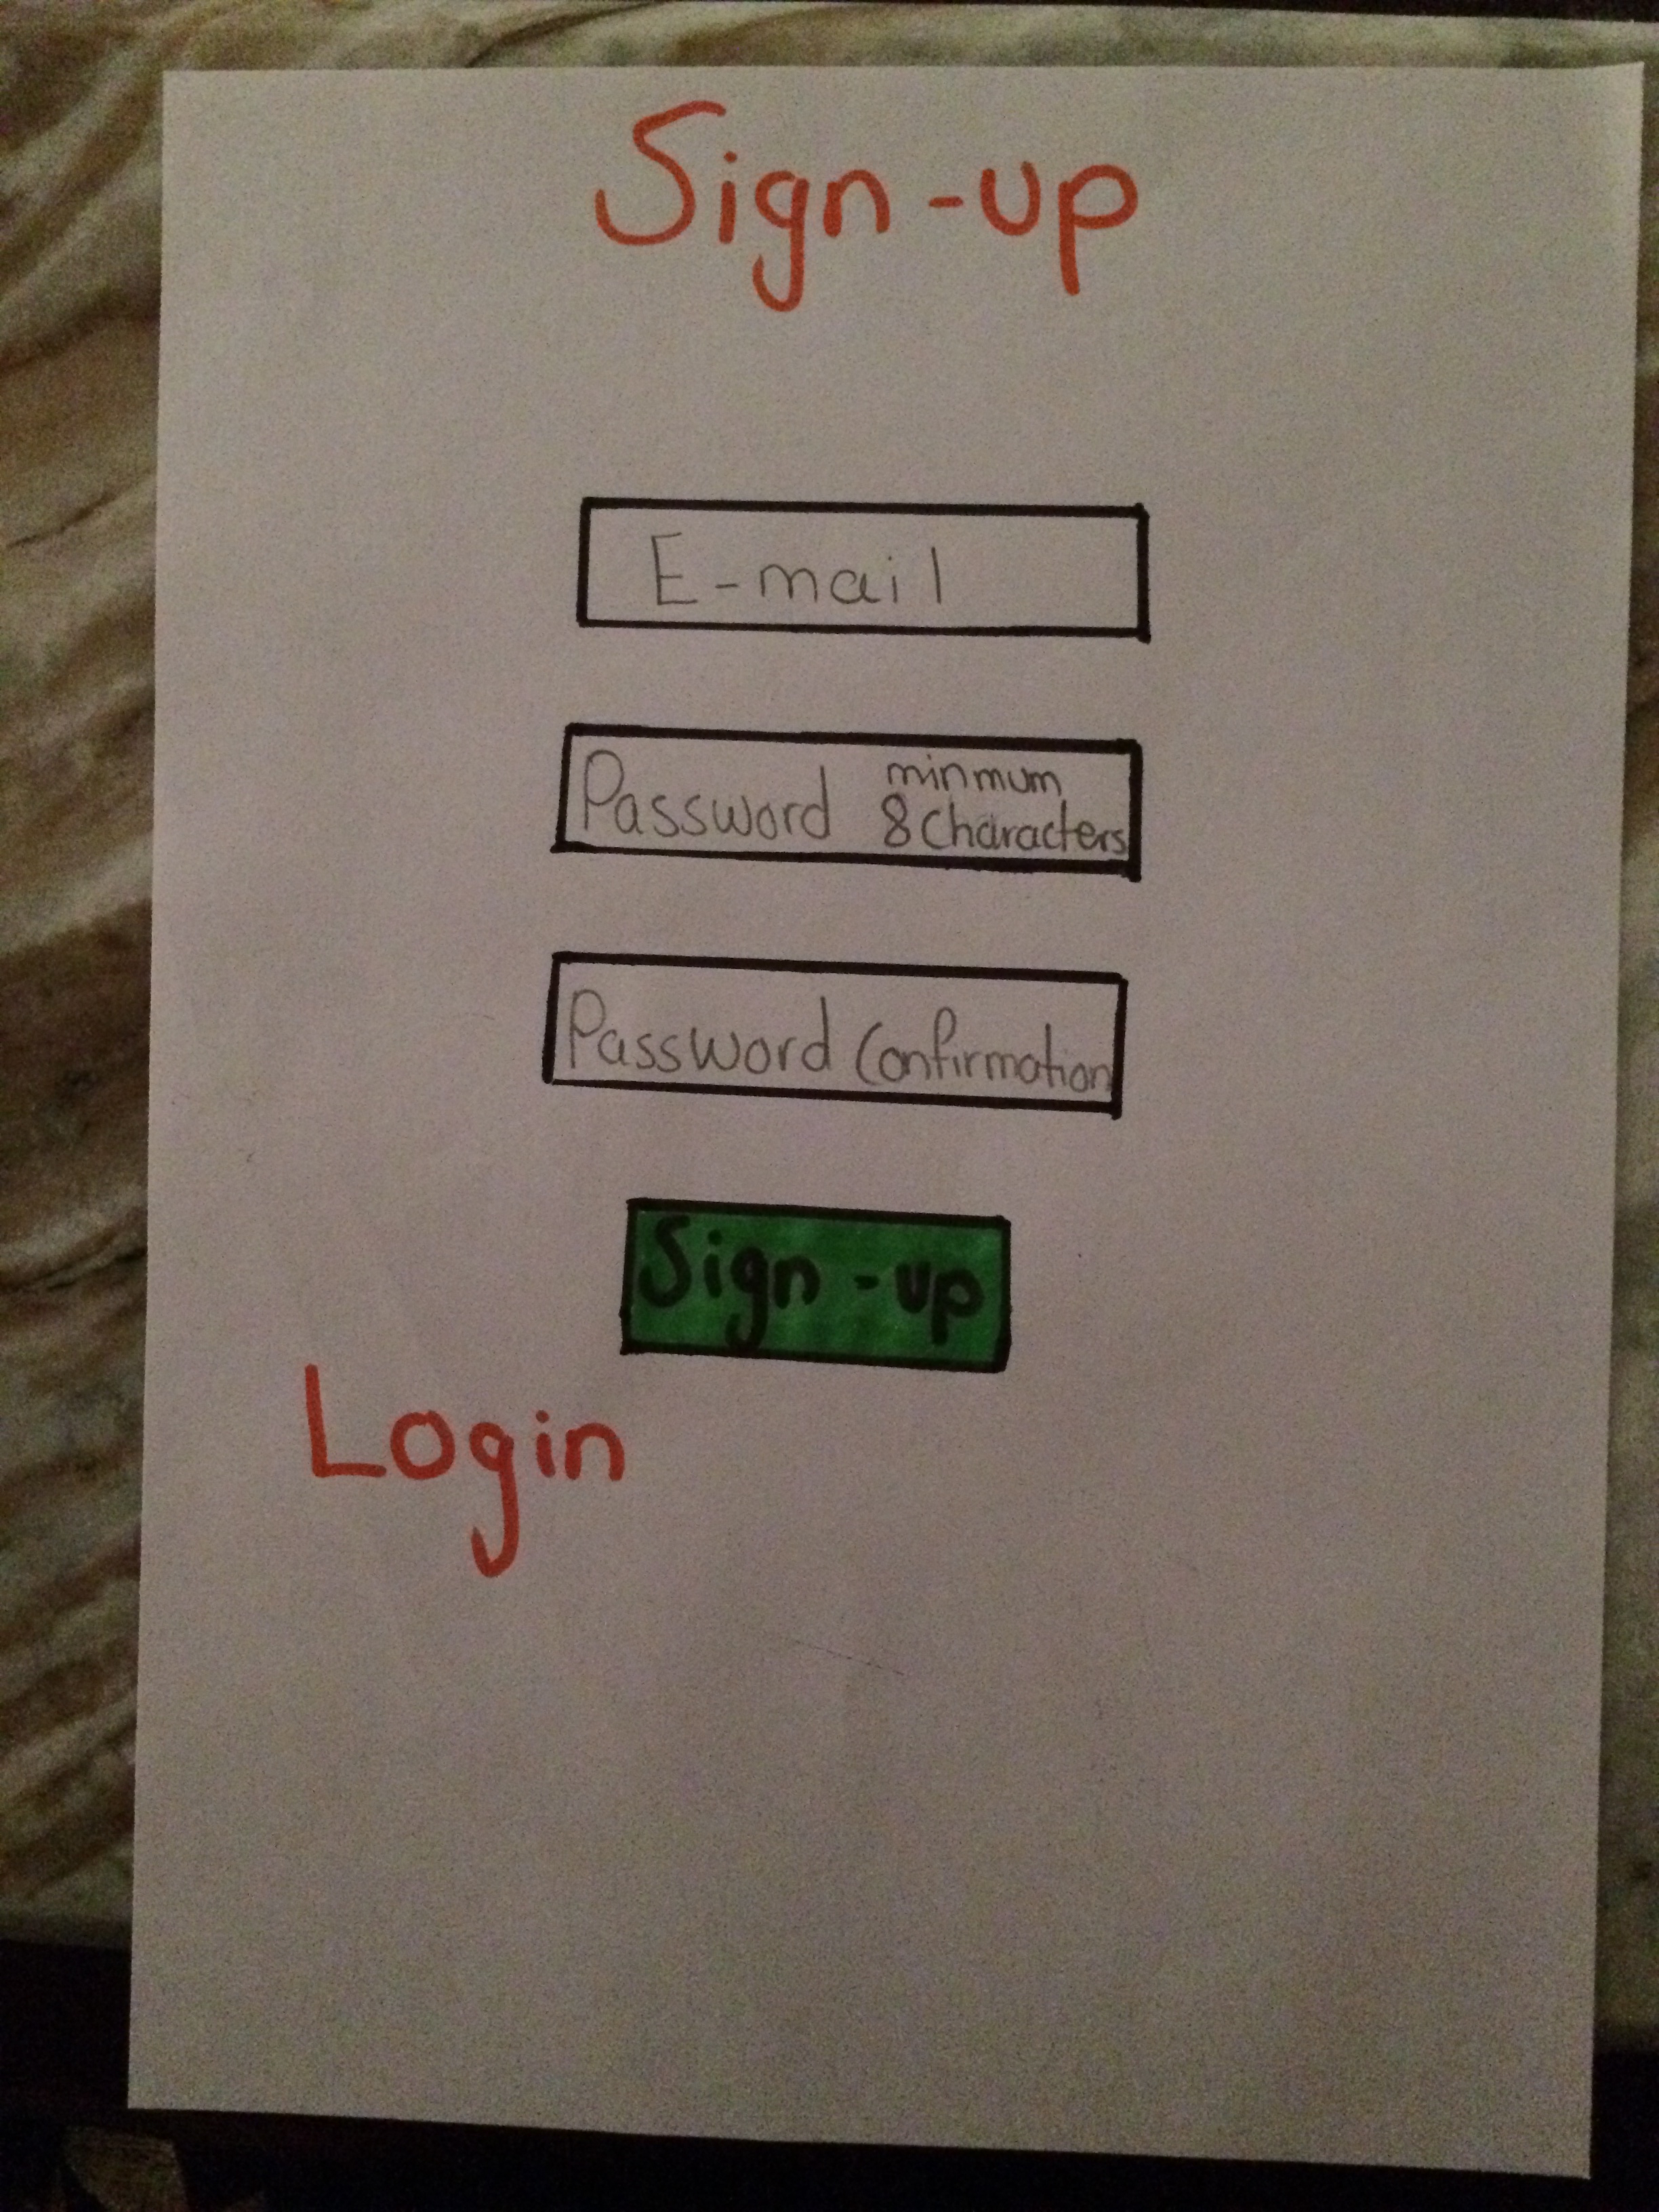 Sign-up
E-mail
Password minmum
8 characters
Password Confirmation
Sign-up
Login